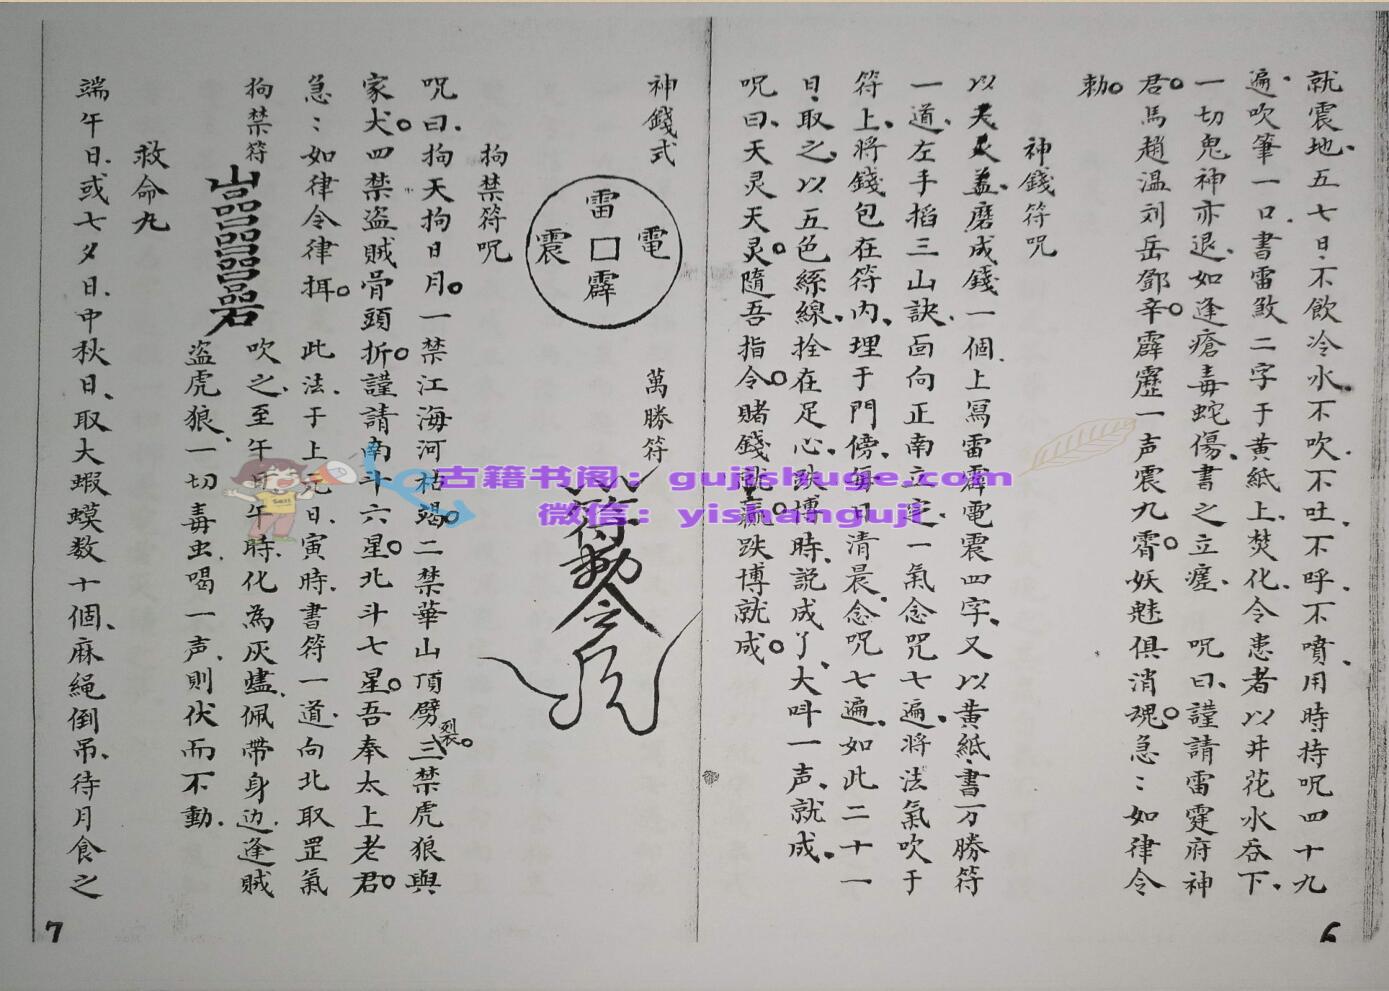 就震地、五七日、不飲冷水、不吹、不吐、不呼、不噴、用時持呪四十九
遍、吹筆一口、書雷敫二字于黄紙上、焚化、令患者以井花水吞下、
一切鬼神亦退、如逢瘡毒蛇傷、書之立瘥 呪曰、謹請雷霆府神
君。馬趙温刘岳鄧辛。霹靂一声震九霄。妖魅俱消魂。急:如律令
勑。
神錢符呪
磨成錢一個、上寫雷霹電震四字、又以黄紙、書万勝符
一道、左手掐三山訣、面向正南立定、一氣念咒七遍、将法氣吹于
符上、将錢包在符内、埋于門傍、每日清晨、念呪七遍、如此二十一
日、取之、以五色絲線、拴在足心、跌博時、説成了、大呌一声、就成。
呪曰、天灵天灵。隨吾指令。賭錢就贏。跌博就成。
神錢式
雷
震 口 電
霹
萬勝符
符勅令
拘禁符呪
呪曰、拘天拘日月。一禁江海河枯竭。二禁華山頂劈裂。三禁虎狼與
家犬。四禁盗賊骨頭折。謹請南斗六星。北斗七星。吾奉太上老君。
急:如律令律
此法、于上元日、寅時、書符一道、向北取罡氣
拘禁符
吹之、至午日午時、化為灰燼、佩帶身边、逢賊
盗虎狼、一切毒虫、喝一声、則伏而不動、
救命九
端午日、或七夕日、中秋日、取大蝦蟆数十個、麻繩倒吊、待月食之
6
7
古籍书阁：gujishuge.com
微信：yishanguji